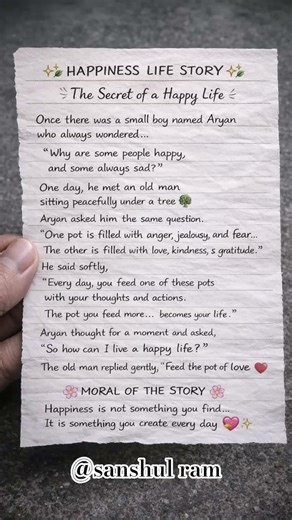 ✨🌿 HAPPINESS LIFE STORY 🌿✨
The Secret of a Happy Life
Once there was a small boy named Aryan
who always wondered...
“Why are some people happy,
and some always sad?”
One day, he met an old man
sitting peacefully under a tree 🌳
Aryan asked him the same question.
“One pot is filled with anger, jealousy, and fear...
The other is filled with love, kindness, s gratitude.”
He said softly,
“Every day, you feed one of these pots
with your thoughts and actions.
The pot you feed more... becomes your life.”
Aryan thought for a moment and asked,
“So how can I live a happy life?”
The old man replied gently, “Feed the pot of love ❤️
🌸 MORAL OF THE STORY 🌸
Happiness is not something you find...
It is something you create every day 💖✨
@sanshul ram